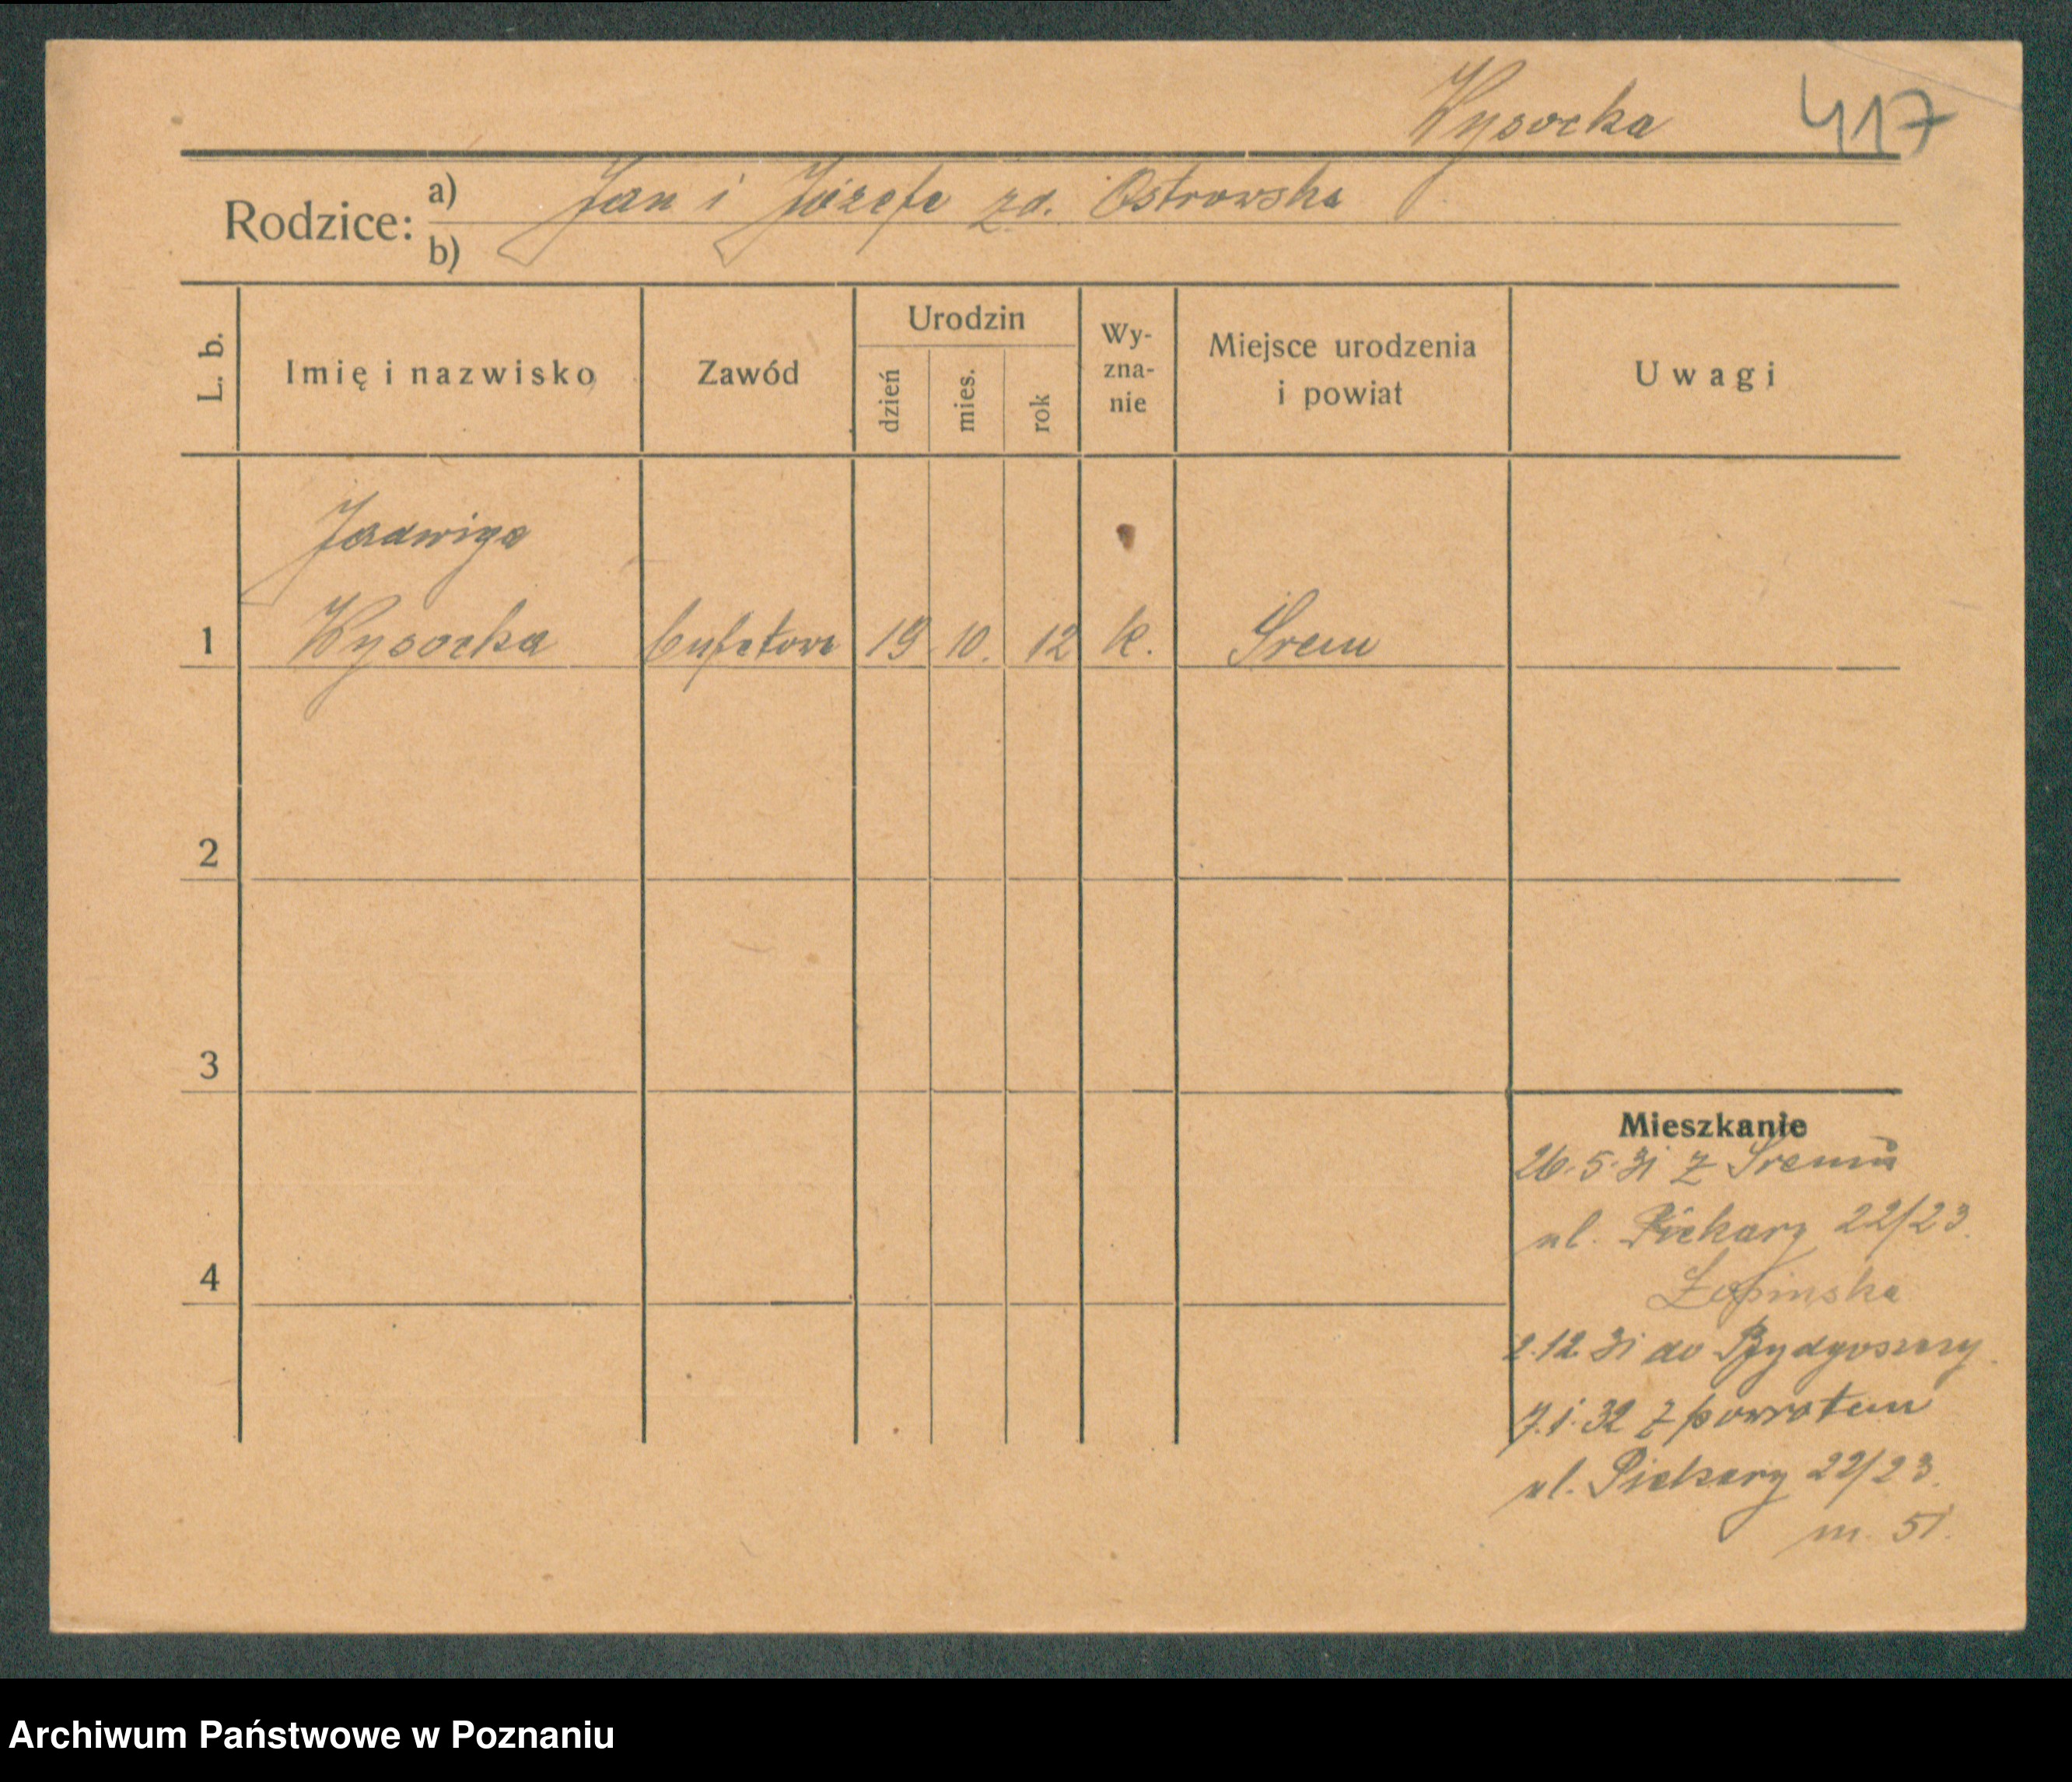 Wysocka 417
Rodzice: a) Jan i Józefa zd. Ostrowska
b)
L. b. Imię i nazwisko Zawód Urodzin dzień mies. rok Wy-zna-nie Miejsce urodzenia i powiat Uwagi
Jadwiga
1 Wysocka bufetowa 19 10. 12 k. Śrem
2
3
Mieszkanie
26.5.31 z Śremu
ul. Piekary 22/23.
4
Łopinska
2.12.31 do Bydgoszczy
7.1.32 z powrotem
ul. Piekary 22/23.
m. 51.
Archiwum Państwowe w Poznaniu